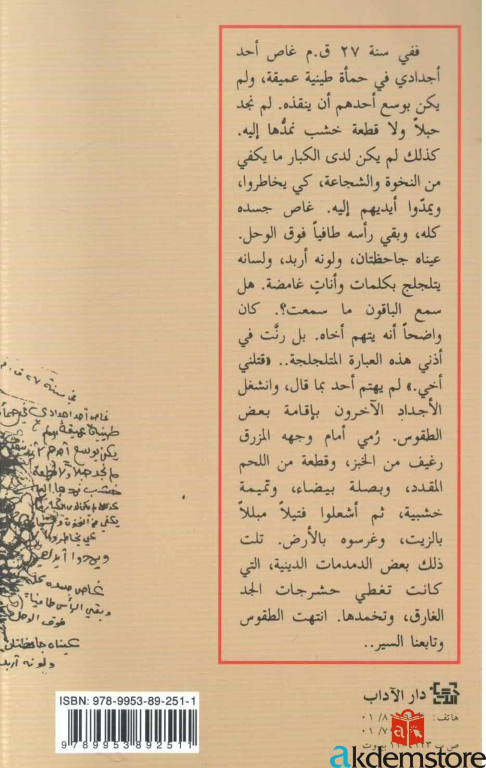 ففي سنة ٢٧ ق.م غاص أحد
أجدادي في حمأة طينية عميقة، ولم
يكن بوسع أحدهم أن ينقذه. لم نجد
حبلاً ولا قطعة خشب نمدُّها إليه.
كذلك لم يكن لدى الكبار ما يكفي
من النخوة والشجاعة، كي يخاطروا،
ويمدّوا أيديهم إليه. غاص جسده
كله، وبقي رأسه طافياً فوق الوحل.
عيناه جاحظتان، ولونه أربد، ولسانه
يتلجلج بكلمات وأناتٍ غامضة. هل
سمع الباقون ما سمعت؟. كان
واضحاً أنه يتهم أخاه. بل رنَّت في
أذني هذه العبارة المتلجلجة.. «قتلني
أخي.» لم يهتم أحد بما قال، وانشغل
الأجداد الآخرون بإقامة بعض
الطقوس. رُمي أمام وجهه المزرق
رغيف من الخبز، وقطعة من اللحم
المقدد، وبصلة بيضاء، وتميمة
خشبية، ثم أشعلوا فتيلاً مبللاً
بالزيت، وغرسوه بالأرض. تلت
ذلك بعض الدمدمات الدينية، التي
كانت تغطي حشرجات الجد
الغارق، وتخمدها. انتهت الطقوس
وتابعنا السير..
في سنة ٢٧ ق.م
غاص أحد أجدادي في حمأة
طينية عميقة ولم
غاص جسده كله
وبقي الرأس طافياً
فوق الوحل
عيناه جاحظتان
ولونه أربد
دار الآداب
هاتف:
بيروت
ISBN: 978-9953-89-251-1
9 789953 892511
akdemstore